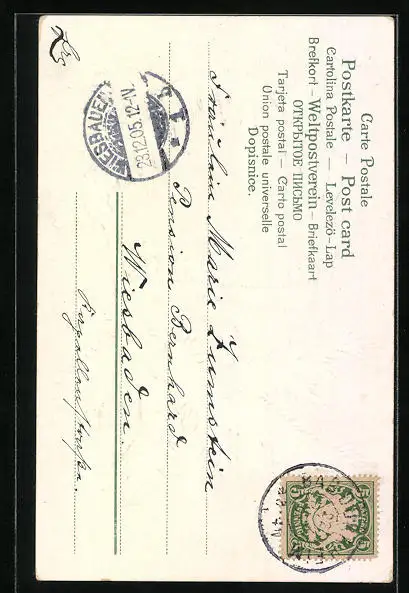 Carte Postale
Postkarte — Post card
Cartolina Postale — Levelező-Lap
Brefkort — Weltpostverein — Briefkaart
ОТКРЫТОЕ ПИСЬМО
Tarjeta postal — Carto postal
Union postale universelle
Dopisnice.
WIESBADEN
23.12.05. 12-1V
* 1 b
5 5
Fräulein Marie Zumstein
Pension Bernhard
Wiesbaden.